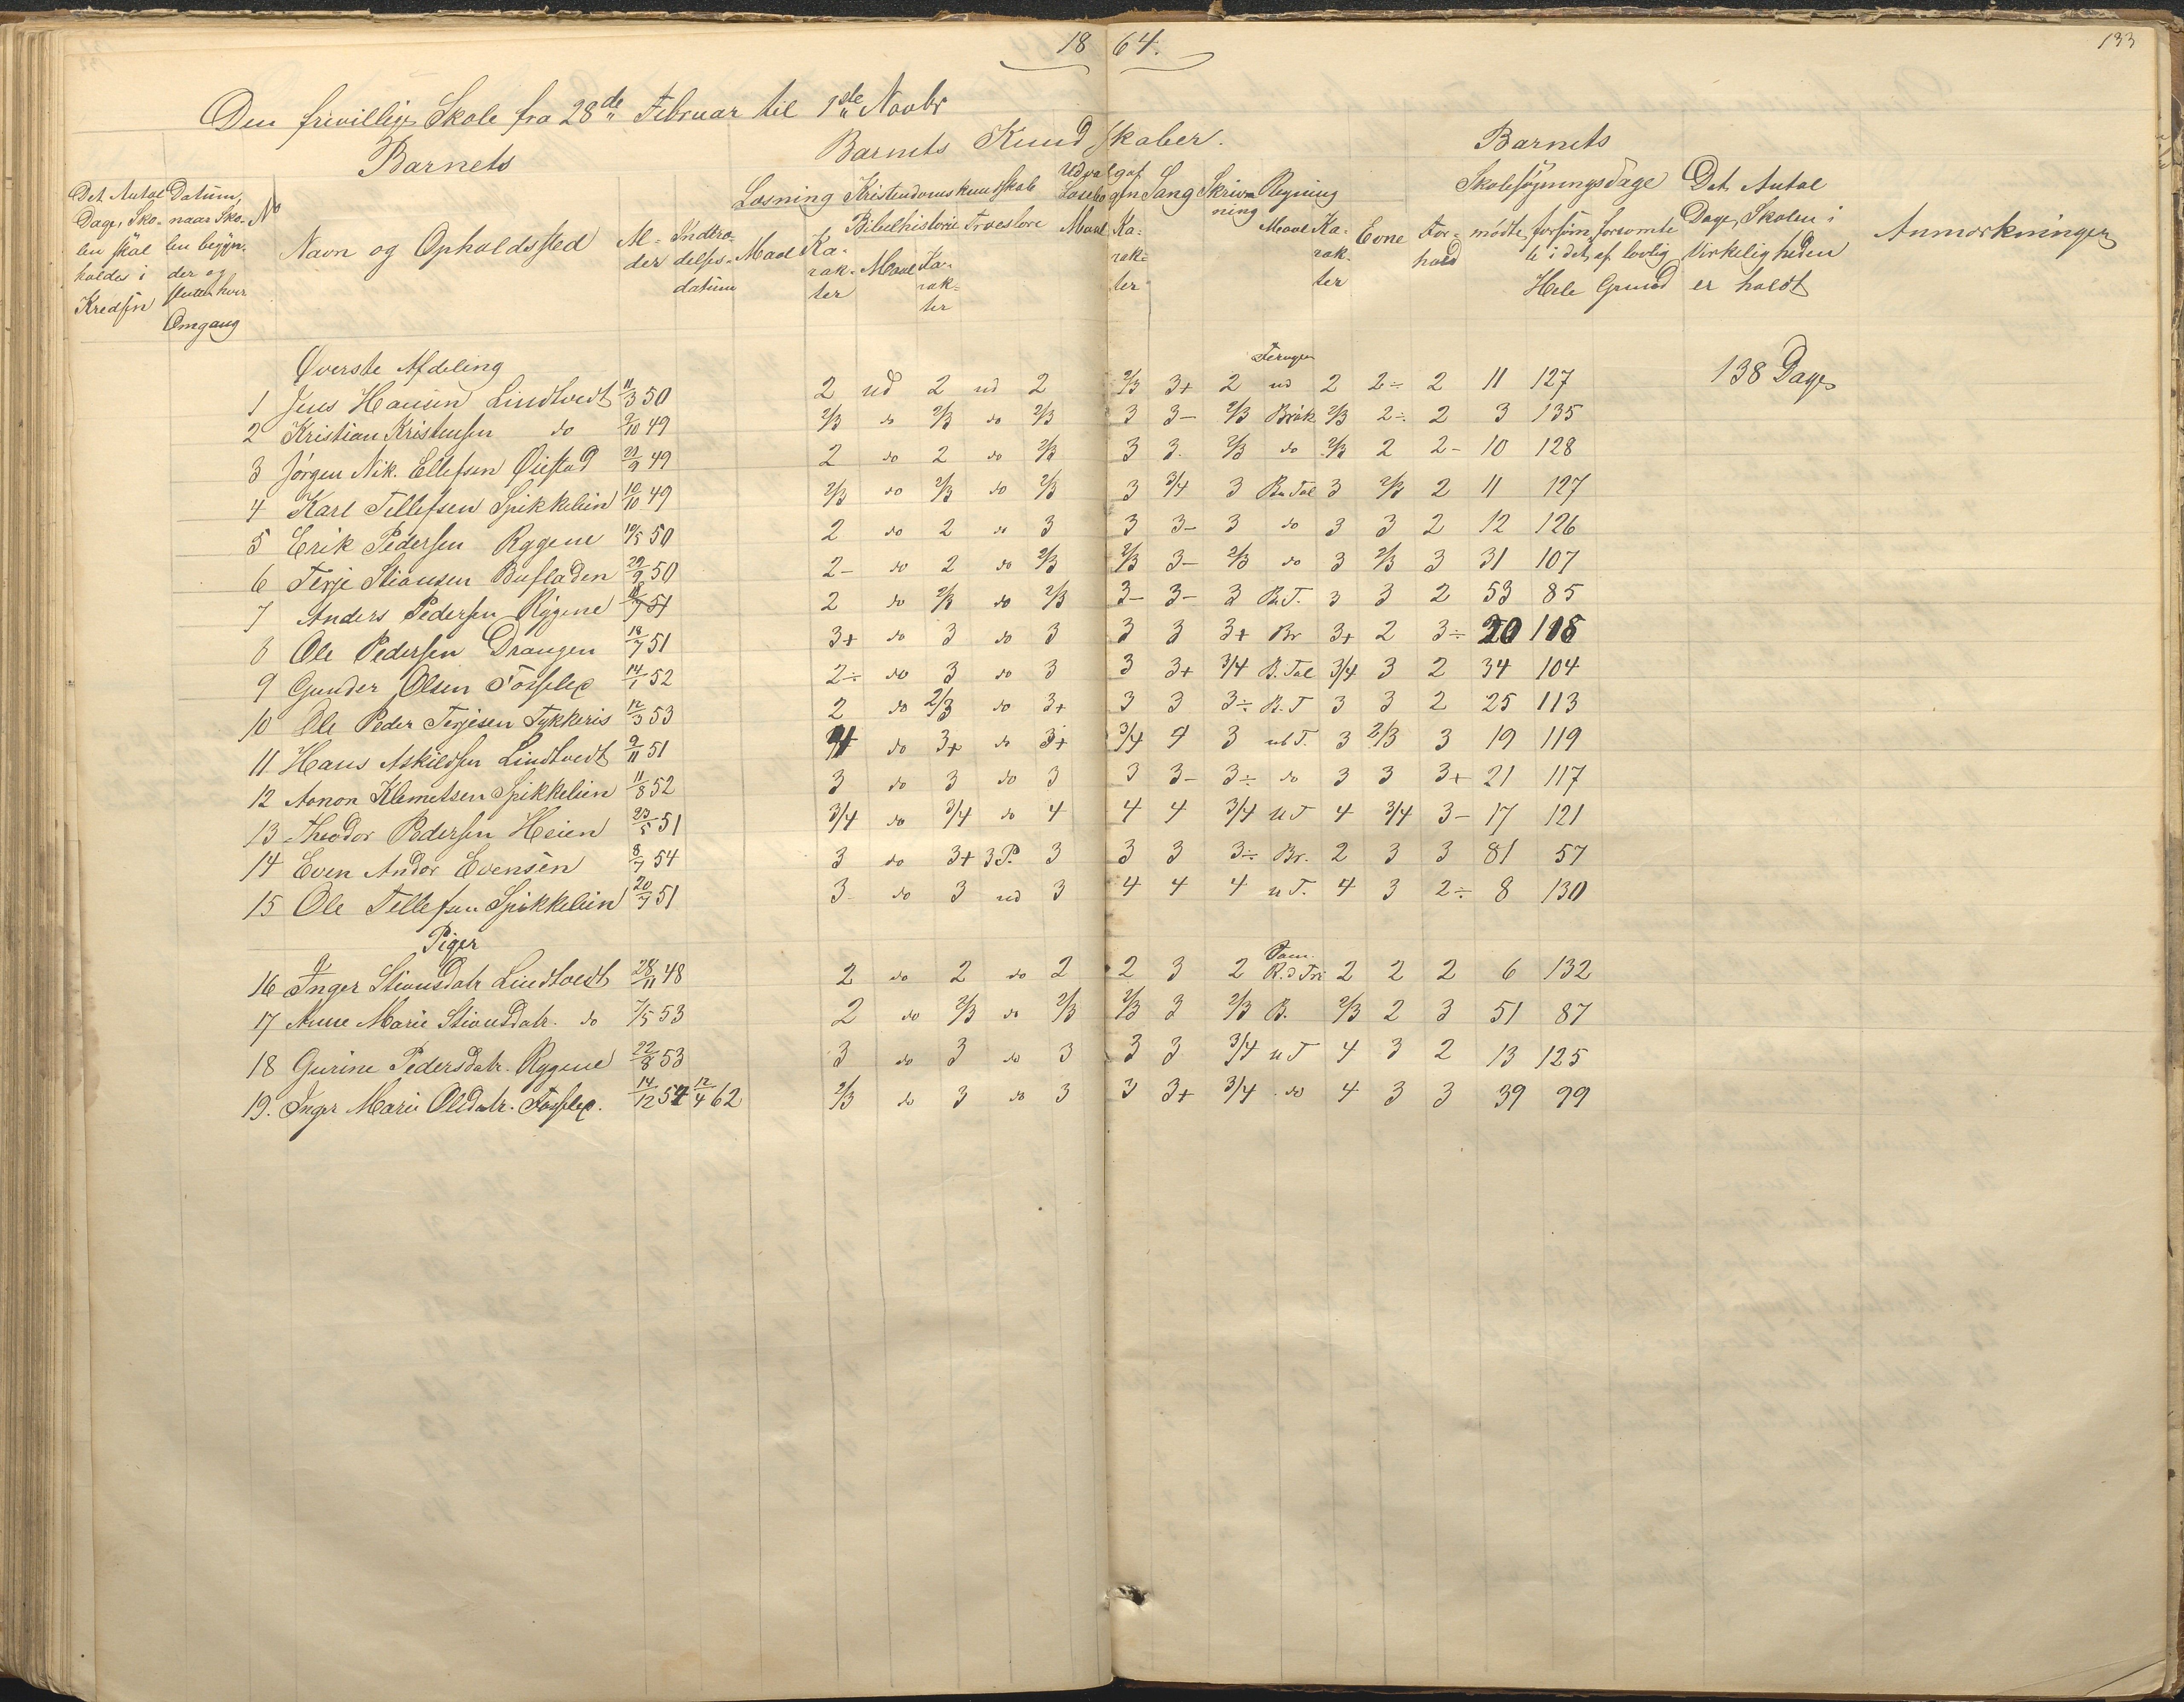 18 64.
133
Den frivillige Skole fra 28de Februar til 1ste Novbr
Barnets
Barnets Kundskaber.
Barnets
Det Antal Dage, Skolen skal holdes i Kredsen
Datum, naar Skolen begynder og slutter hver Omgang
No
Navn og Opholdssted
Alder
Indtrædelsesdatum
Læsning
Maal Karakter
Kristendomskundskab
Bibelhistorie Troeslære
Maal Karakter
Udvalg af Læsebogen
Maal Karakter
Sang
Skrivning
Regning
Maal Karakter
Evne
Forhold
Skolesøgningsdage
mødte, forsømte i det Hele, forsømte af lovlig Grund
Det Antal Dage, Skolen i Virkeligheden er holdt
Anmærkninger
Øverste Afdeling
1 Jens Hansen Lindtvedt 11/3 50 2 ud 2 ud 2 2/3 3+ 2 ud 2 2÷ 2 11 127 138 Dage
2 Kristian Kristensen do 9/10 49 2/3 do 2/3 do 2/3 3 3- 2/3 Brök 2/3 2÷ 2 3 135
3 Jörgen Nik. Ellefsen Öiestad 21/9 49 2 do 2 do 2/3 3 3- 2/3 do 2/3 2 2- 10 128
4 Karl Tellefsen Spikkelien 10/10 49 2/3 do 2/3 do 2/3 3 3/4 3 Bn Tal 3 2/3 2 11 127
5 Erik Pedersen Rygene 10/5 50 2 do 2 do 3 3 3- 3 do 3 3 2 12 126
6 Terje Stiansen Bufladen 29/9 50 2- do 2 do 2/3 2/3 3- 2/3 do 3 2/3 3 31 107
7 Anders Pedersen Rygene 18/7 51 2 do 2/3 do 2/3 3- 3- 3 Bn T. 3 3 2 53 85
8 Ole Pedersen Drangen 18/7 51 3+ do 3 do 3 3 3 3+ Br 3+ 2 3÷ 20 118
9 Gunder Olsen Fosselie 14/1 52 2÷ do 3 do 3 3 3+ 3/4 B. Tal 3/4 3 2 34 104
10 Ole Peder Terjesen Tykkeris 12/3 53 2 do 2/3 do 3+ 3 3 3÷ B. T 3 3 2 25 113
11 Hans Askildsen Lindtvedt 9/11 51 4 do 3+ do 3+ 3/4 4 3 ub T. 3 2/3 3 19 119
12 Aanon Klemetsen Spikkelien 11/8 52 3 do 3 do 3 3 3- 3÷ do 3 3 3+ 21 117
13 Theodor Pedersen Heien 23/5 51 3/4 do 3/4 do 4 4 4 3/4 u T 4 3/4 3- 17 121
14 Even Andor Evensen 8/7 54 3 do 3+ 3 P. 3 3 3 3÷ Br. 2 3 3 81 57
15 Ole Tellefsen Spikkelien 20/7 51 3 do 3 ud 3 4 4 4 u T. 4 3 2÷ 8 130
Piger
16 Inger Stiansdatr Lindtvedt 28/11 48 2 do 2 do 2 2 3 2 R. d Tri 2 2 2 6 132
17 Anne Marie Stiansdatr. do 7/5 53 2 do 2/3 do 2/3 2/3 3 2/3 B. 2/3 2 3 51 87
18 Gurine Pedersdatr. Rygene 22/8 53 3 do 3 do 3 3 3 3/4 u T 4 3 2 13 125
19. Inger Marie Olsdatr. Fosselie. 14/12 54 12/4 62 2/3 do 3 do 3 3 3+ 3/4 do 4 3 3 39 99